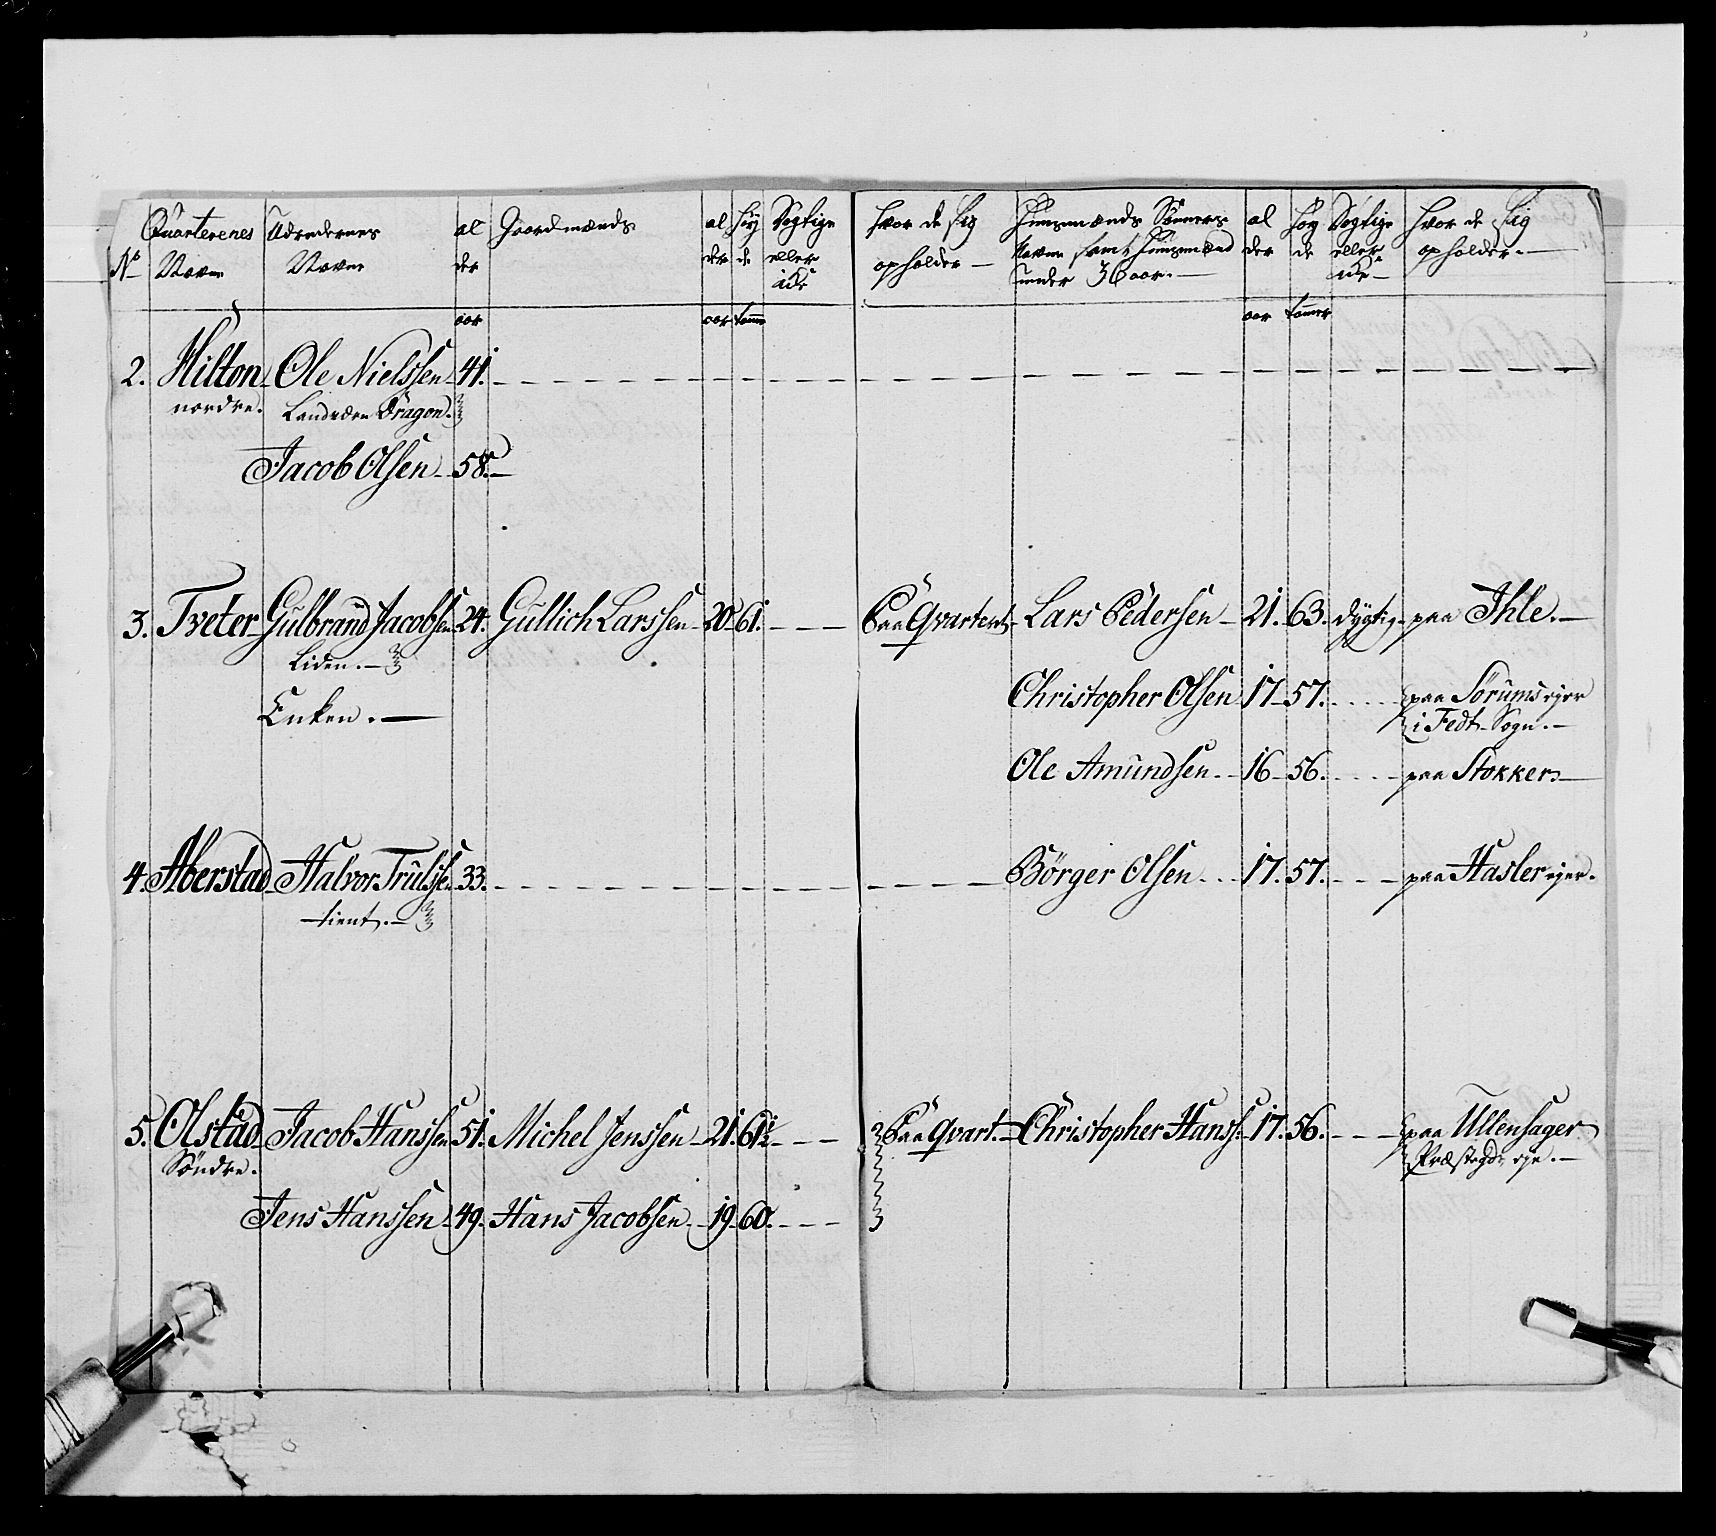 No
Quarterenes Navne
Udredernes Navne
al der
Gaardmænds
al der
høy de
Dygtige eller icke
hvor de sig opholder
Huusmænds Sønners
Navne samt Huusmænd
under 36 aar.
al der
høy de
Dygtige eller icke
hvor de sig opholder.
aar aar tomme aar tommer
2. Hilton Ole Nielssen 41.
nordre. Landværn Dragon.
Jacob Olsen 58.
3. Tveter Gulbrand Jacobsen 24. Gullich Larssen 20. 61. Paa Qvarteret Lars Pedersen 21. 63. dygtig paa Ihle.
Liden.
Christopher Olsen 17 57. paa Sørums ejer
Enken. i Fedt Sogn.
Ole Amundsen 16 56. paa Stokker
4. Aberstad Halvor Trulsse 33. Børger Olsen 17. 57. paa Hasler ejer.
tient.
5. Olstad Jacob Hanssen 51. Michel Jenssen 21. 61½ Paa qvart. Christopher Hanss: 17. 56. paa Ullensager
Søndre. Præstegds eje.
Jens Hanssen 49. Hans Jacobsen 19. 60.